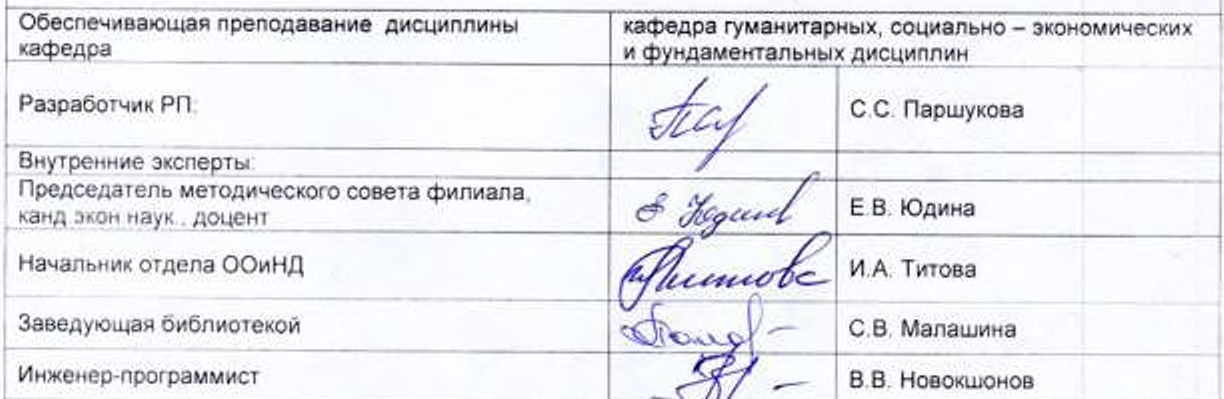 Обеспечивающая преподавание дисциплины
кафедра
кафедра гуманитарных, социально – экономических
и фундаментальных дисциплин
Разработчик РП:
С.С. Паршукова
Внутренние эксперты:
Председатель методического совета филиала,
канд экон наук., доцент
Е.В. Юдина
Начальник отдела ООиНД
И.А. Титова
Заведующая библиотекой
С.В. Малашина
Инженер-программист
В.В. Новокшонов